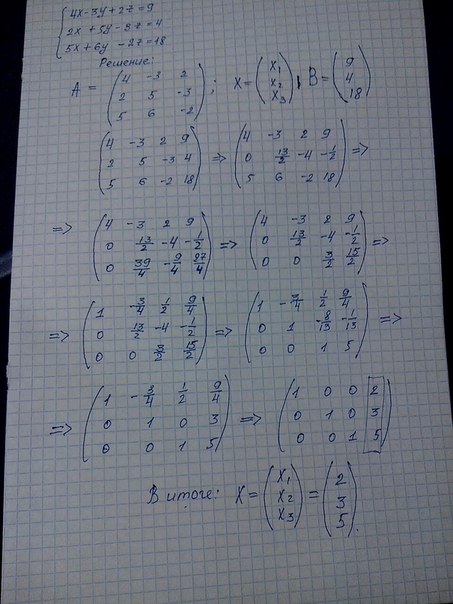 { 4x-3y+2z=9
2x+5y-3z=4
5x+6y-2z=18
Решение:
A = (4 -3 2; 2 5 -3; 5 6 -2); X = (x₁; x₂; x₃), B = (9; 4; 18)
(4 -3 2 9; 2 5 -3 4; 5 6 -2 18) => (4 -3 2 9; 0 13/2 -4 -1/2; 5 6 -2 18) =>
=> (4 -3 2 9; 0 13/2 -4 -1/2; 0 39/4 -9/4 27/4) => (4 -3 2 9; 0 13/2 -4 -1/2; 0 0 3/2 15/2) =>
=> (1 -3/4 1/2 9/4; 0 13/2 -4 -1/2; 0 0 3/2 15/2) => (1 -3/4 1/2 9/4; 0 1 -8/13 -1/13; 0 0 1 5) =>
=> (1 -3/4 1/2 9/4; 0 1 0 3; 0 0 1 5) => (1 0 0 2; 0 1 0 3; 0 0 1 5)
В итоге: X = (x₁; x₂; x₃) = (2; 3; 5).